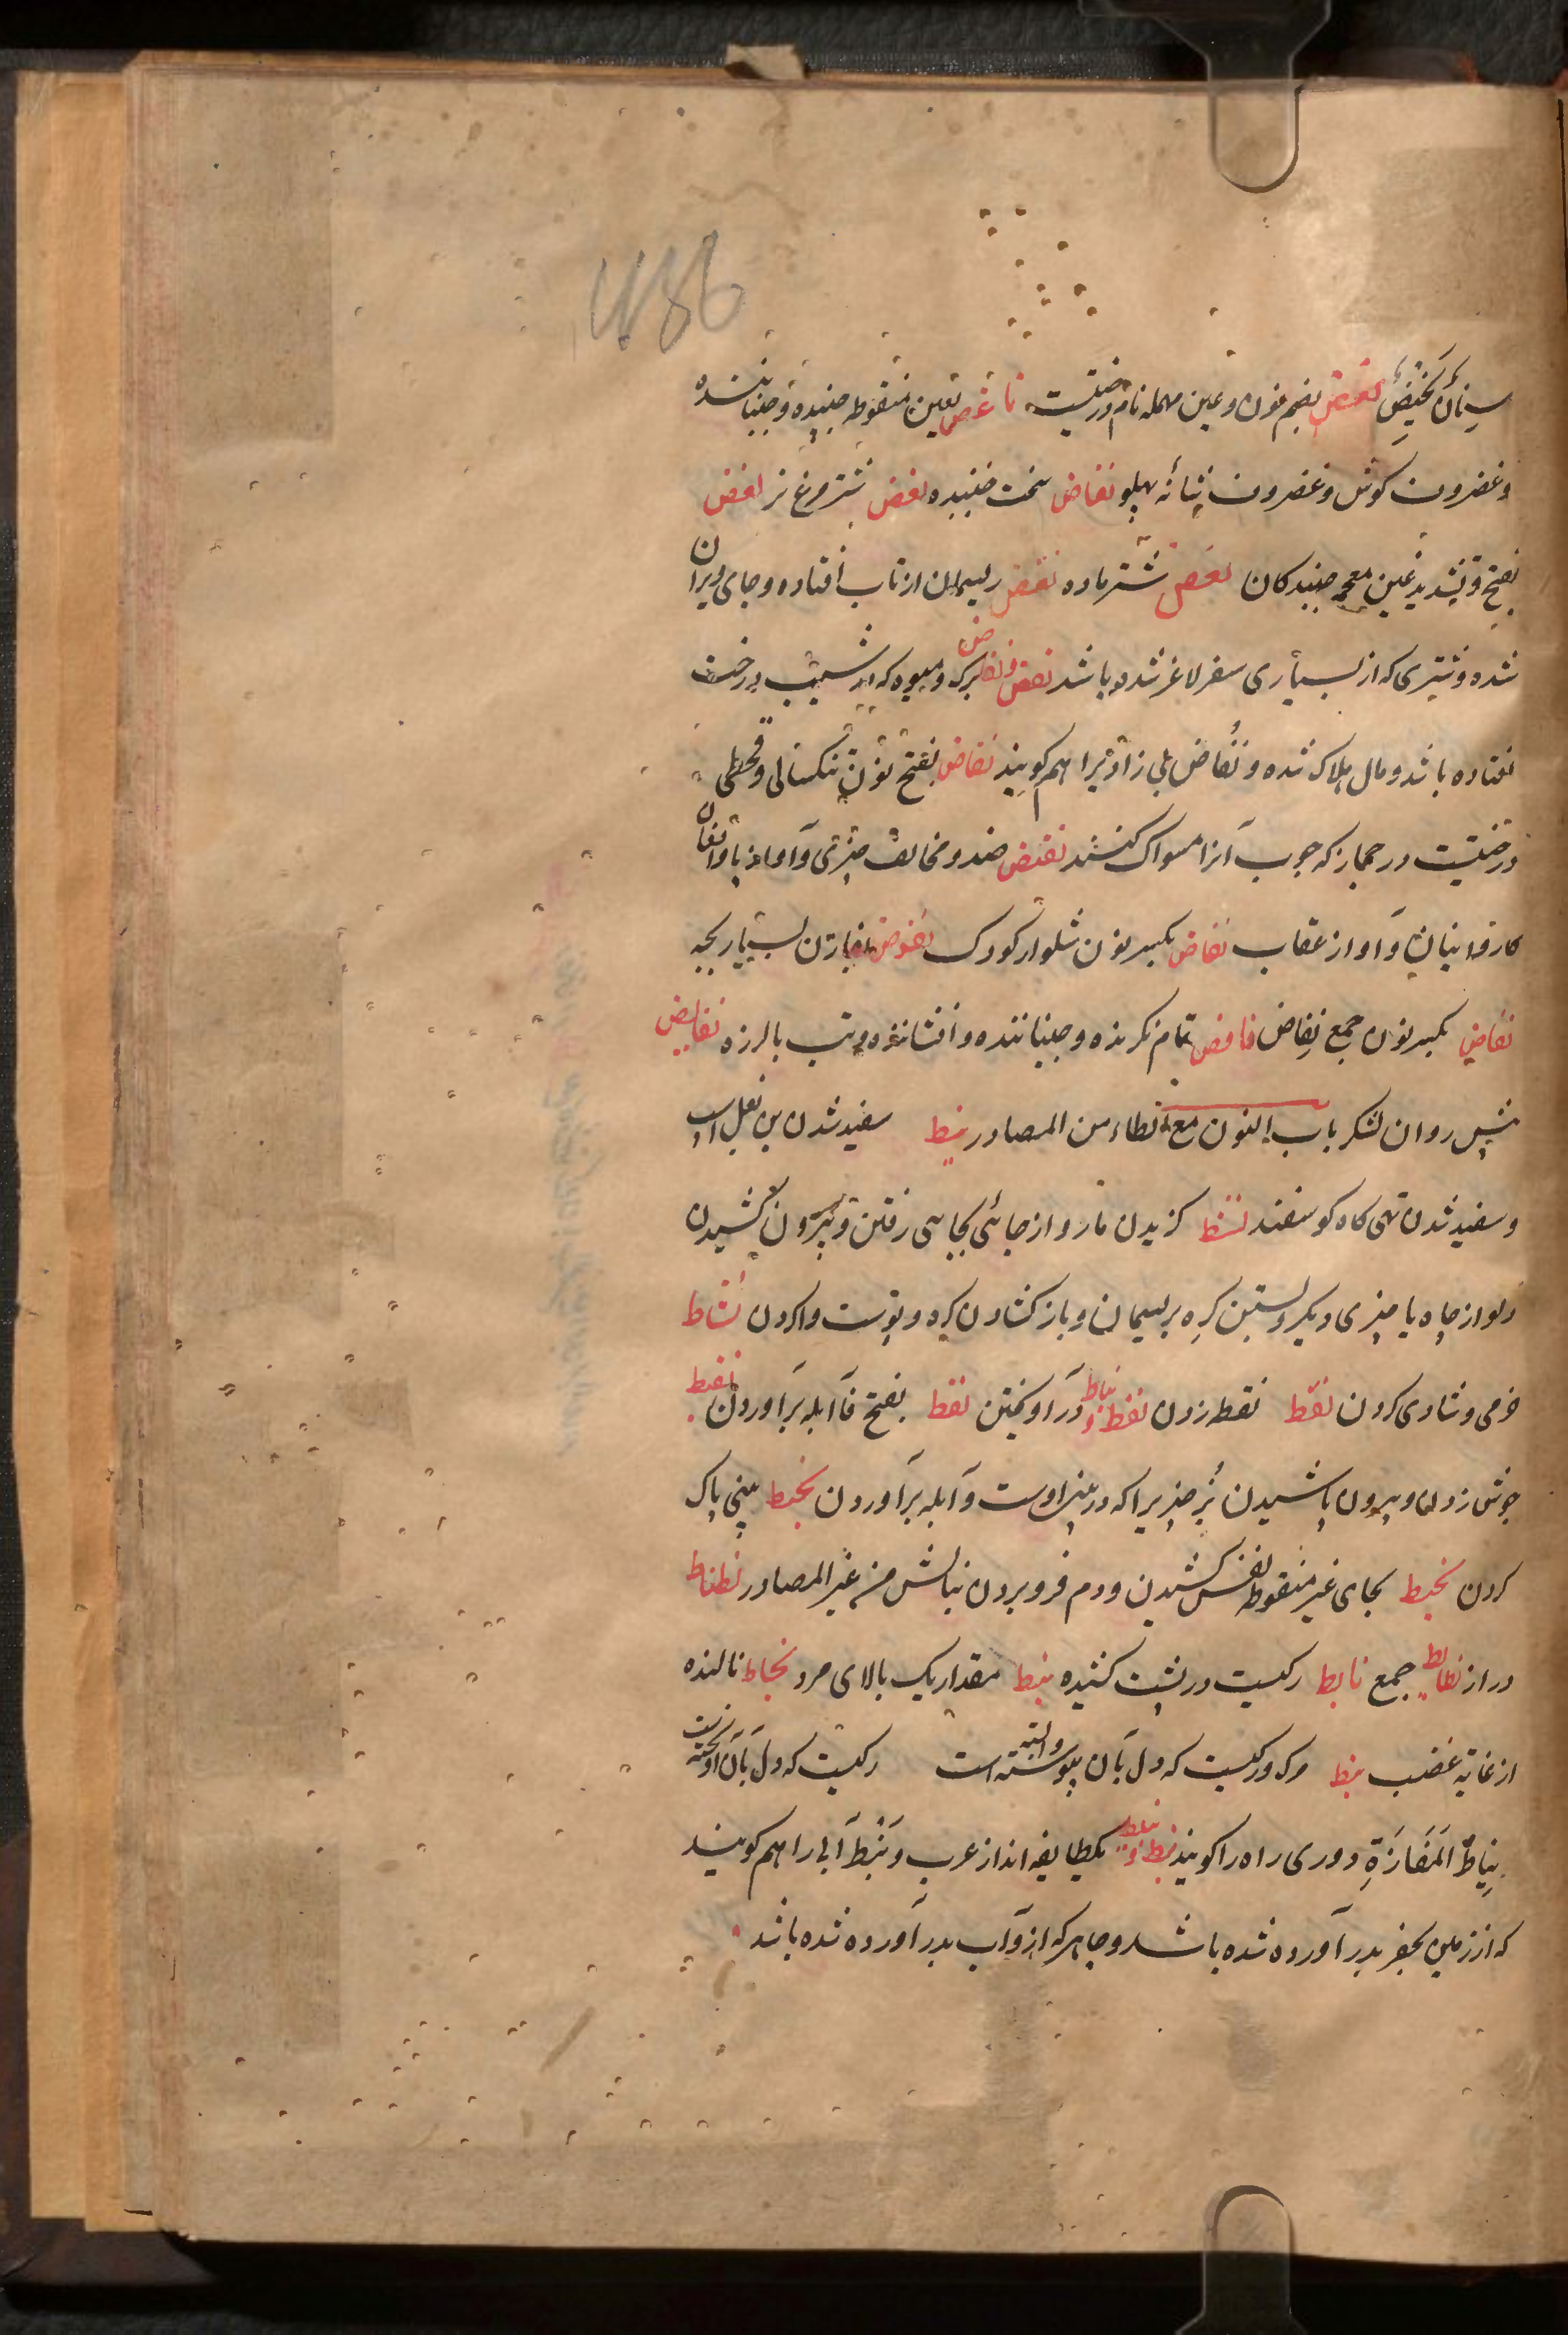 سِنانٌ نَحیضٌ نعض بضم نون و عین مهمله نام درختیست ناغض بغین منقوطه جنبیده و جنباننده
و غضروف کوش و غضروف شانه پهلو نغاض سخت جنبیده نغض شترمرغ نر نغض
بفتح و تشدید غین معجمه جنبدکان نغض شتر ماده نقض ریسمان از تاب افتاده و جای ویران
شده و شتری که از بسیاری سفر لاغر شده باشد نفض و نفاض برک و میوه که در شیب درخت
افتاده باشد و مال هلاک شده و نُفاض بی زادیرا هم کویند نفاض بفتح نون تنکسالی و قحطی
درختیست در حجاز که چوب آنرا مسواک کنند نقیض ضد و مخالف چیزی و آواز
کاروانیان و آواز عقاب نفاض بکسر نون شلوار کودک نفوض زن بسیار بچه
نفاض بکسر نون جمع نِفاض نافض تمام نکرنده و جنباننده و افشاننده و تب بالرزه نفایض
پیش روان لشکر باب النون مع الطاء من المصادر نبط سفید شدن بن بغل اسب
و سفید شدن تهی کاه کوسفند نشط کزیدن مار و از جائی بجایی رفتن و بیرون کشیدن
دلو از چاه یا چیزی دیکر و بستن کره بریسمان و باز کشادن کره و پوست واکردن نشاط
خرمی و شادی کردن نقط نقطه زدن نوط و نیاط درآویختن نفط بفتح فا آبله برآوردن نفیط
جوش زدن و بیرون پاشیدن بُز چیزیرا که در بینی اوست و آبله برآوردن نخیط بینی پاک
کردن نحیط بحای غیر منقوطه نفس کشیدن و دم فرو بردن بنالش من غیر المصادر نطناط
دراز نطانط جمع نایط رکیست در پشت کشیده نبط مقدار یک بالای مرد نحاط نالنده
از غایة غضب نیط مرک و رکیست که دل بآن پیوسته و بسته است رکیست که دل بآن آویخته است
نِیاطُ المَفازَةِ دوری راه را کویند نبط و نبیط یکطایفه اند از عرب و نَبَط آبی را هم کویند
که از زمین بحفر بدر آورده شده باشد و چاهی که ازو آب بدر آورده شده باشد